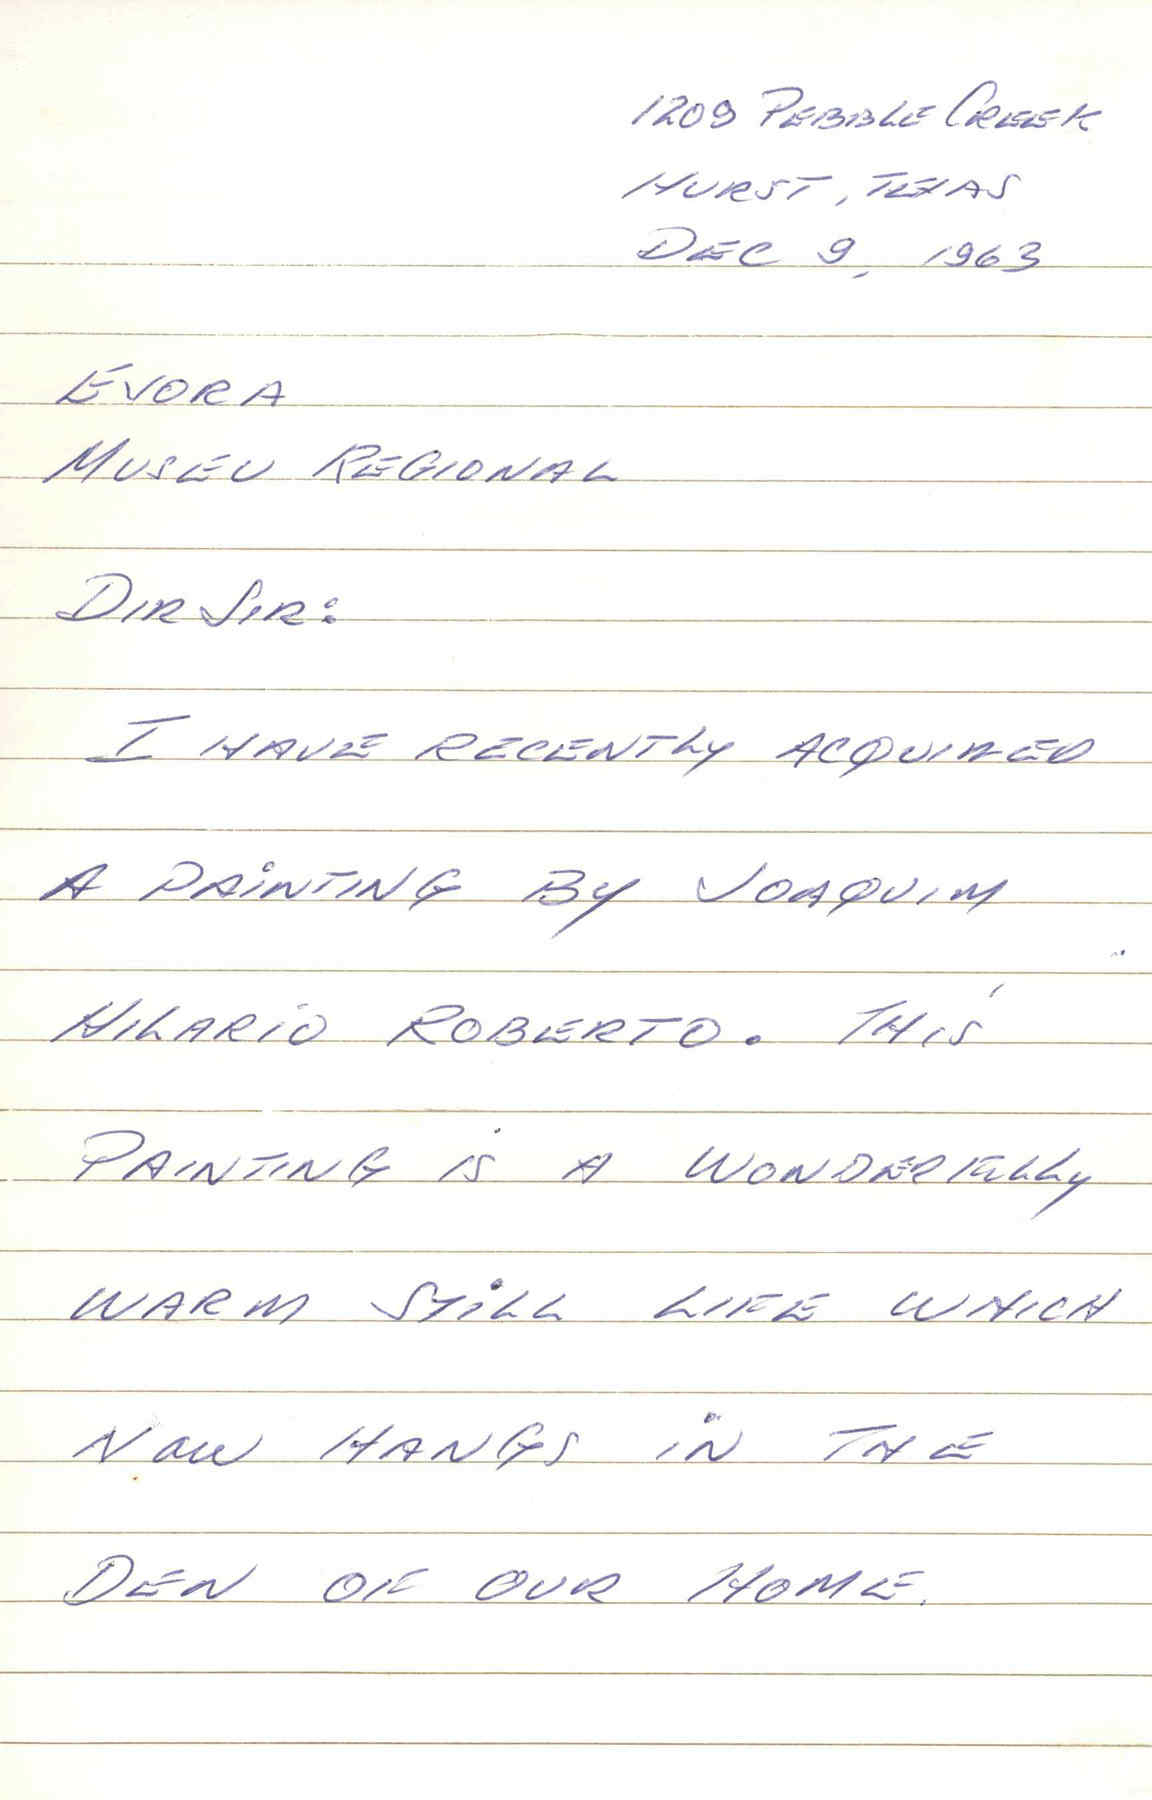 1209 PEBBLE CREEK
HURST, TEXAS
DEC 9, 1963
EVORA
MUSEU REGIONAL
DIR SIR:
I HAVE RECENTLY ACQUIRED
A PAINTING BY JOAQUIM
HILARIO ROBERTO. THIS
PAINTING IS A WONDERFULLY
WARM STILL LIFE WHICH
NOW HANGS IN THE
DEN OF OUR HOME.